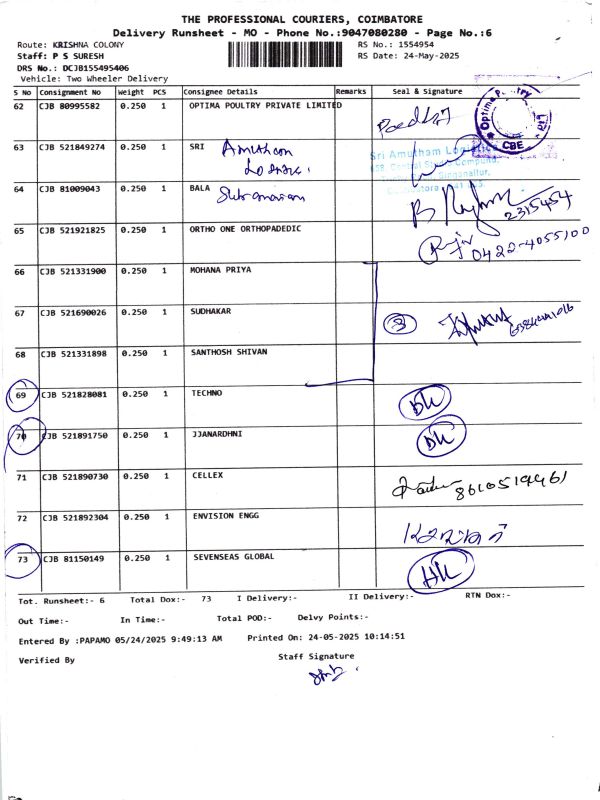 THE PROFESSIONAL COURIERS, COIMBATORE
Delivery Runsheet - MO - Phone No.:9047080280 - Page No.:6
Route: KRISHNA COLONY RS No.: 1554954
Staff: P S SURESH RS Date: 24-May-2025
DRS No.: DCJB155495406
Vehicle: Two Wheeler Delivery
S No Consignment No Weight PCS Consignee Details Remarks Seal & Signature
62 CJB 80995582 0.250 1 OPTIMA POULTRY PRIVATE LIMITED
Optima Poultry Ltd CBE
63 CJB 521849274 0.250 1 SRI
Sri Amutham Logistics
64 CJB 81009043 0.250 1 BALA
2315454
65 CJB 521921825 0.250 1 ORTHO ONE ORTHOPADEDIC
0422-4055100
66 CJB 521331900 0.250 1 MOHANA PRIYA
67 CJB 521690026 0.250 1 SUDHAKAR 3
68 CJB 521331898 0.250 1 SANTHOSH SHIVAN
69 CJB 521828081 0.250 1 TECHNO DK
70 CJB 521891750 0.250 1 JJANARDHNI DK
71 CJB 521890730 0.250 1 CELLEX
8610519461
72 CJB 521892304 0.250 1 ENVISION ENGG
73 CJB 81150149 0.250 1 SEVENSEAS GLOBAL HK
Tot. Runsheet:- 6 Total Dox:- 73 I Delivery:- II Delivery:- RTN Dox:-
Out Time:- In Time:- Total POD:- Delvy Points:-
Entered By :PAPAMO 05/24/2025 9:49:13 AM Printed On: 24-05-2025 10:14:51
Verified By Staff Signature